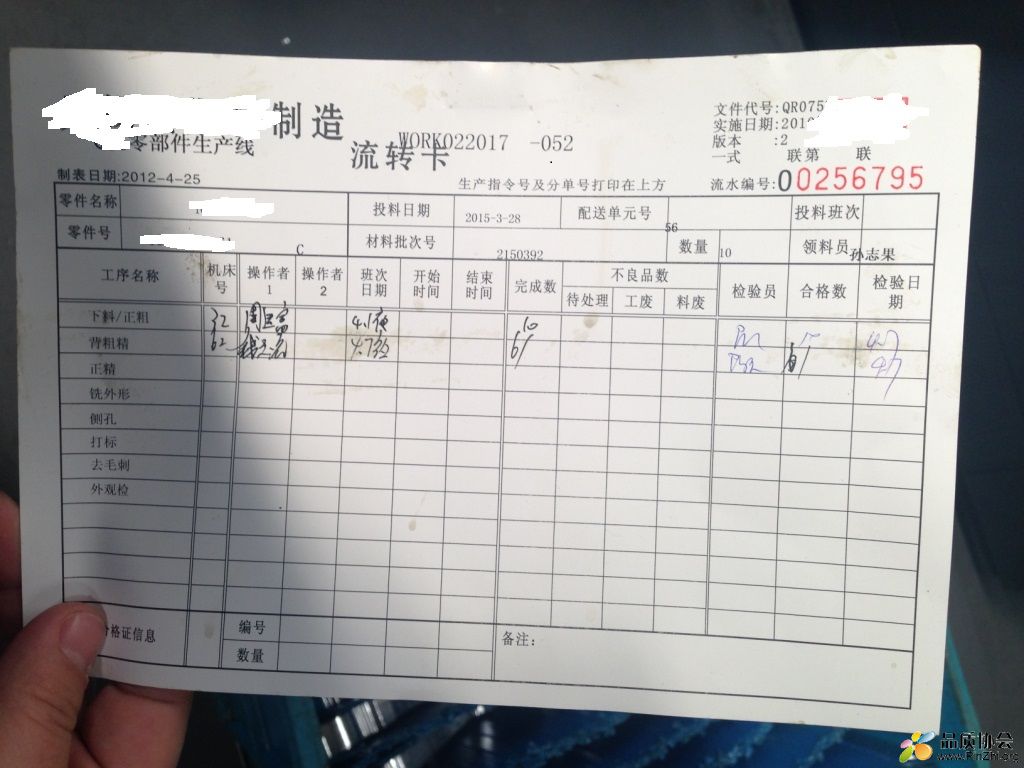 制造
零部件生产线
WORK022017 -052
流转卡
文件代号:QR075
实施日期:201
版本 :2
一式 联第 联
制表日期:2012-4-25
生产指令号及分单号打印在上方
流水编号:00256795
零件名称 投料日期 2015-3-28 配送单元号 56 投料班次
零件号 C 材料批次号 2150392 数量 10 领料员 孙志果
工序名称 机床号 操作者1 操作者2 班次日期 开始时间 结束时间 完成数 不良品数 检验员 合格数 检验日期
待处理 工废 料废
下料/正粗 32 10
背粗精 62 4.7 61
正精
铣外形
侧孔
打标
去毛刺
外观检
合格证信息 编号 备注:
数量
品质协会
www.PinZhi.org